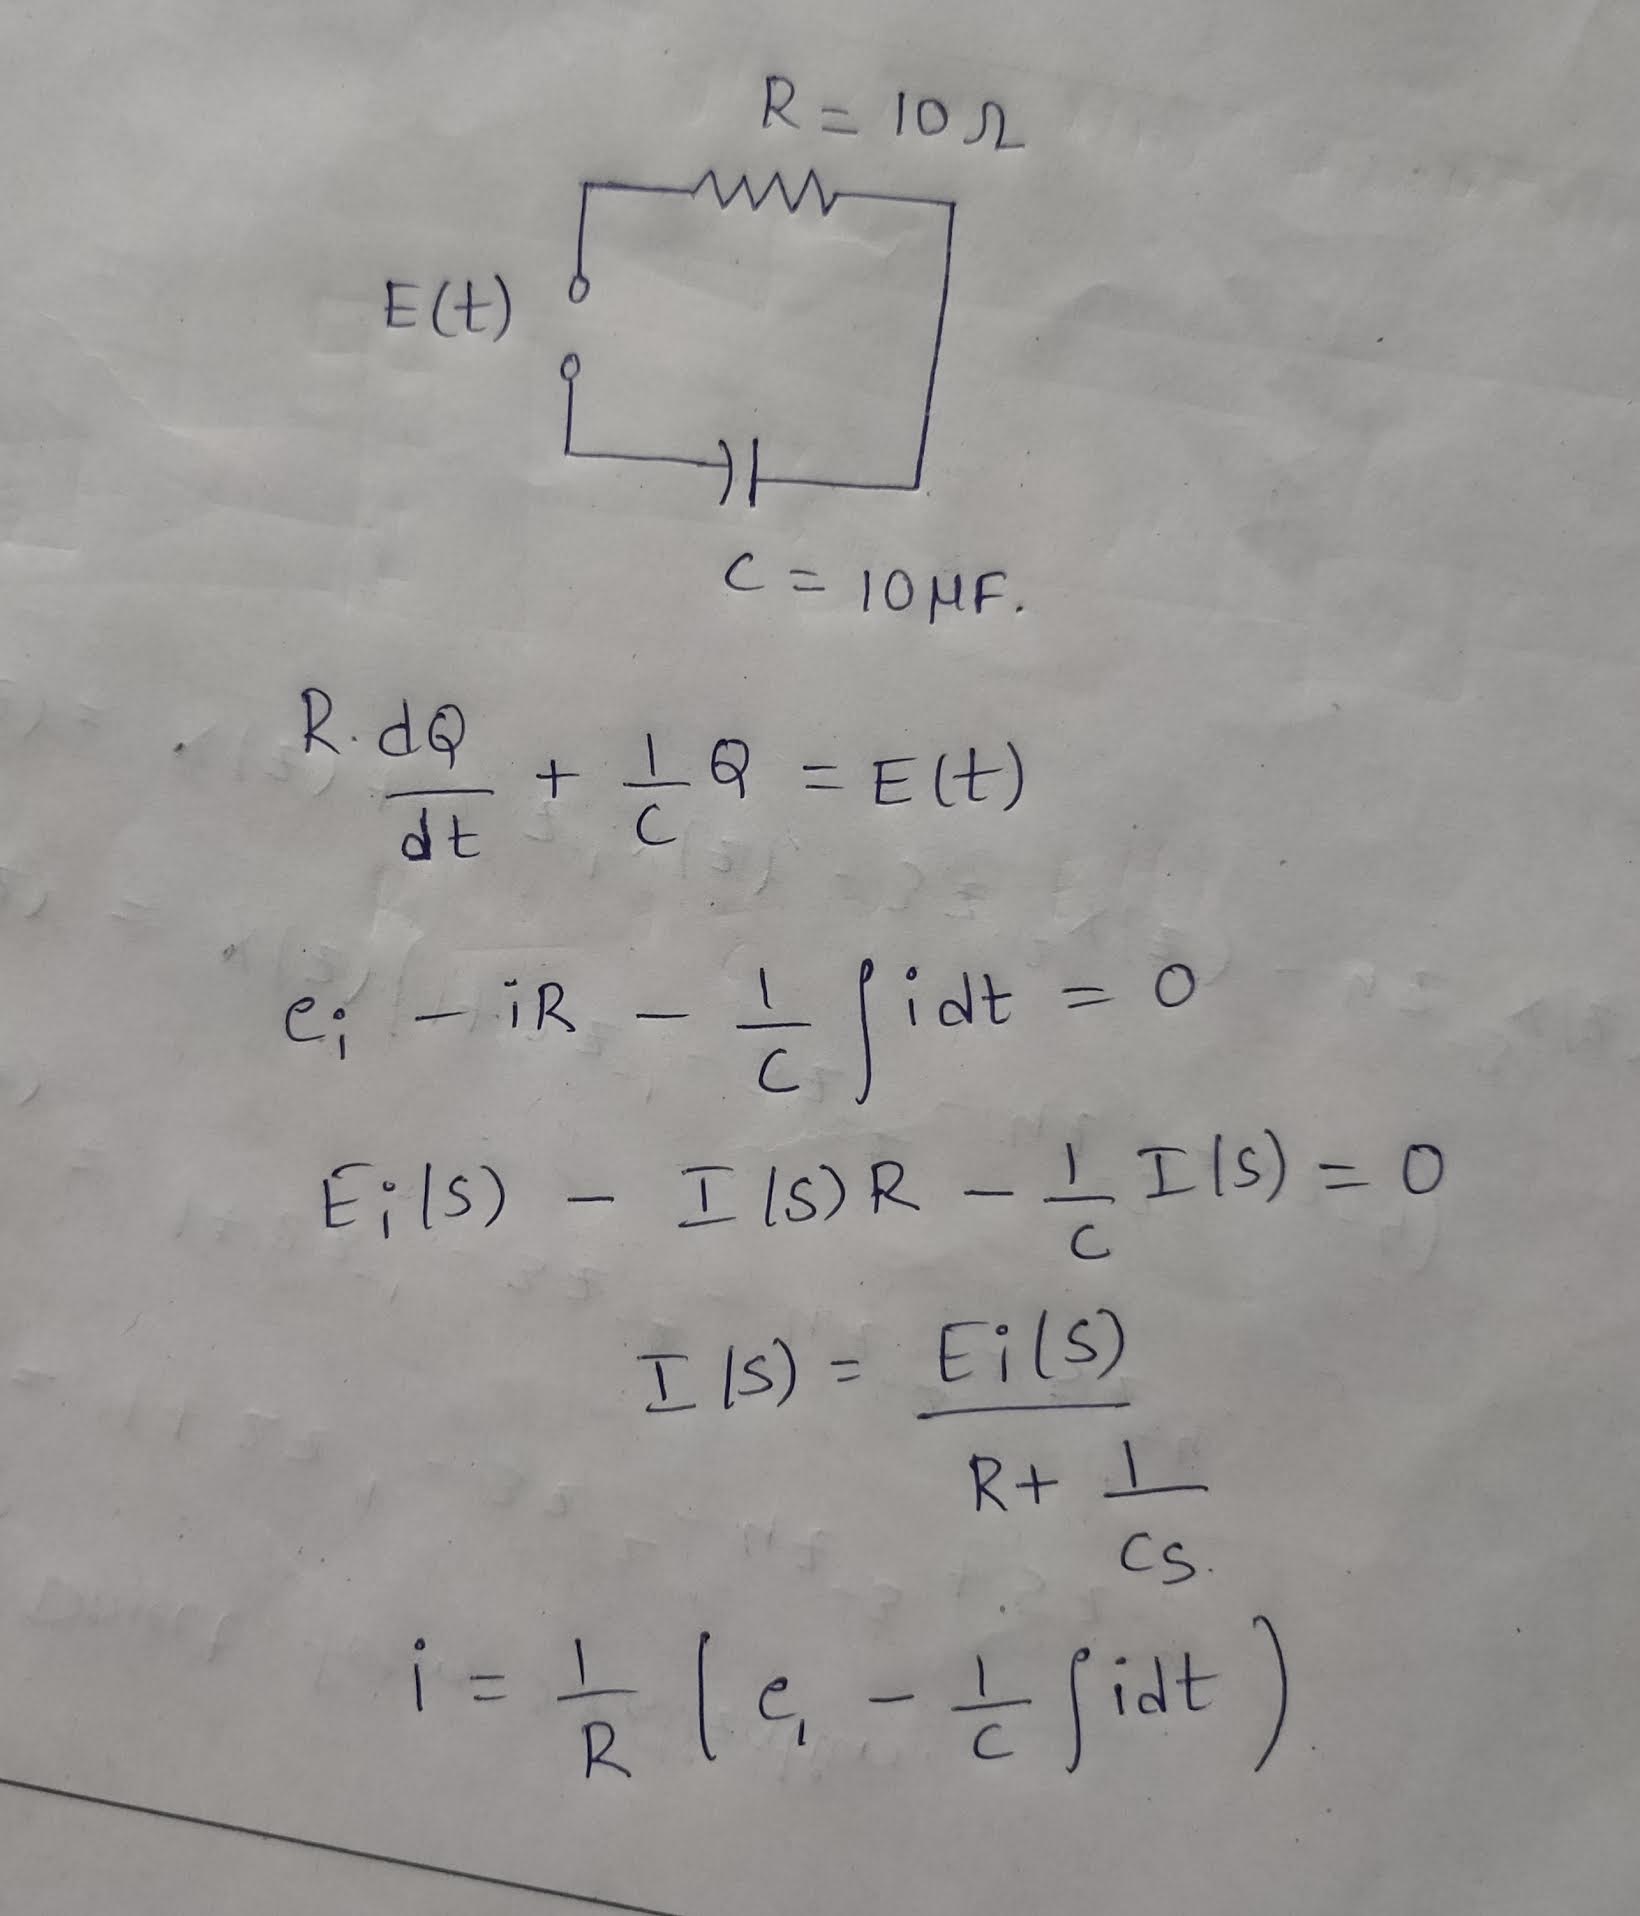 R = 10 Ω
E(t)
C = 10 μF.
R. dQ/dt + 1/C Q = E(t)
ei - iR - 1/C ∫ idt = 0
Ei(S) - I(S) R - 1/C I(S) = 0
I(S) = Ei(S) / R + 1/CS.
i = 1/R ( ei - 1/C ∫ idt )